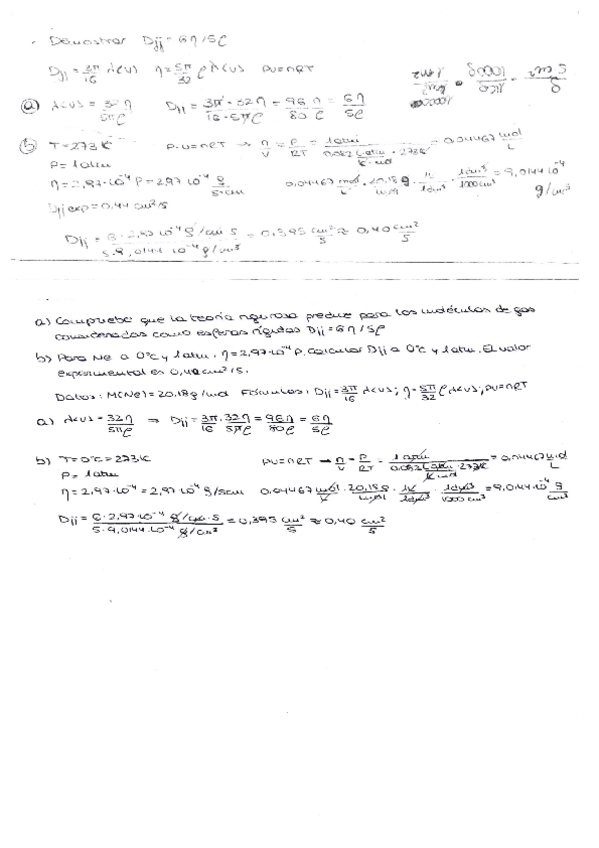 Demostrar Djj = 6η/5ρ
Djj = 3π/16 λ<v> η = 5π/32 ρ λ<v> PV=nRT
a) λ<v> = 32η/5πρ Djj = 3π·32η/16·5πρ = 96η/80ρ = 6η/5ρ
b) T=273K P·V=nRT → n/V = P/RT = 1atm/0,082 atm·L/K·mol · 273K = 0,04467 mol/L
P=1atm
η=2,97·10⁻⁴ P = 2,97·10⁻⁴ g/s·cm 0,04467 mol/L · 20,18 g/mol · 1L/1dm³ · 1dm³/1000cm³ = 9,0144·10⁻⁴ g/cm³
Djj exp=0,44 cm²/s
Djj = 6·2,97·10⁻⁴ g/cm·s / 5·9,0144·10⁻⁴ g/cm³ = 0,395 cm²/s ≈ 0,40 cm²/s
a) Compruebe que la teoría rigurosa predice para las moléculas de gas
consideradas como esferas rígidas Djj = 6η/5ρ
b) Para Ne a 0°C y 1atm. η=2,97·10⁻⁴ P. Calcular Djj a 0°C y 1atm. El valor
experimental es cm²/s.
Datos: M(Ne)=20,18g/mol Fórmulas: Djj = 3π/16 λ<v>; η = 5π/32 ρλ<v>; PV=nRT
a) λ<v> = 32η/5πρ ⇒ Djj = 3π/16 · 32η/5πρ = 96η/80ρ = 6η/5ρ
b) T=0°C=273K PV=nRT → n/V = P/RT = 1atm/0,082 atm·L/K·mol · 273K = 0,04467 mol/L
P=1atm
η=2,97·10⁻⁴ = 2,97·10⁻⁴ g/s·cm 0,04467 mol/L · 20,18g/mol · 1L/1dm³ · 1dm³/1000cm³ = 9,0144·10⁻⁴ g/cm³
Djj = 6·2,97·10⁻⁴ g/cm·s / 5·9,0144·10⁻⁴ g/cm³ = 0,395 cm²/s ≈ 0,40 cm²/s